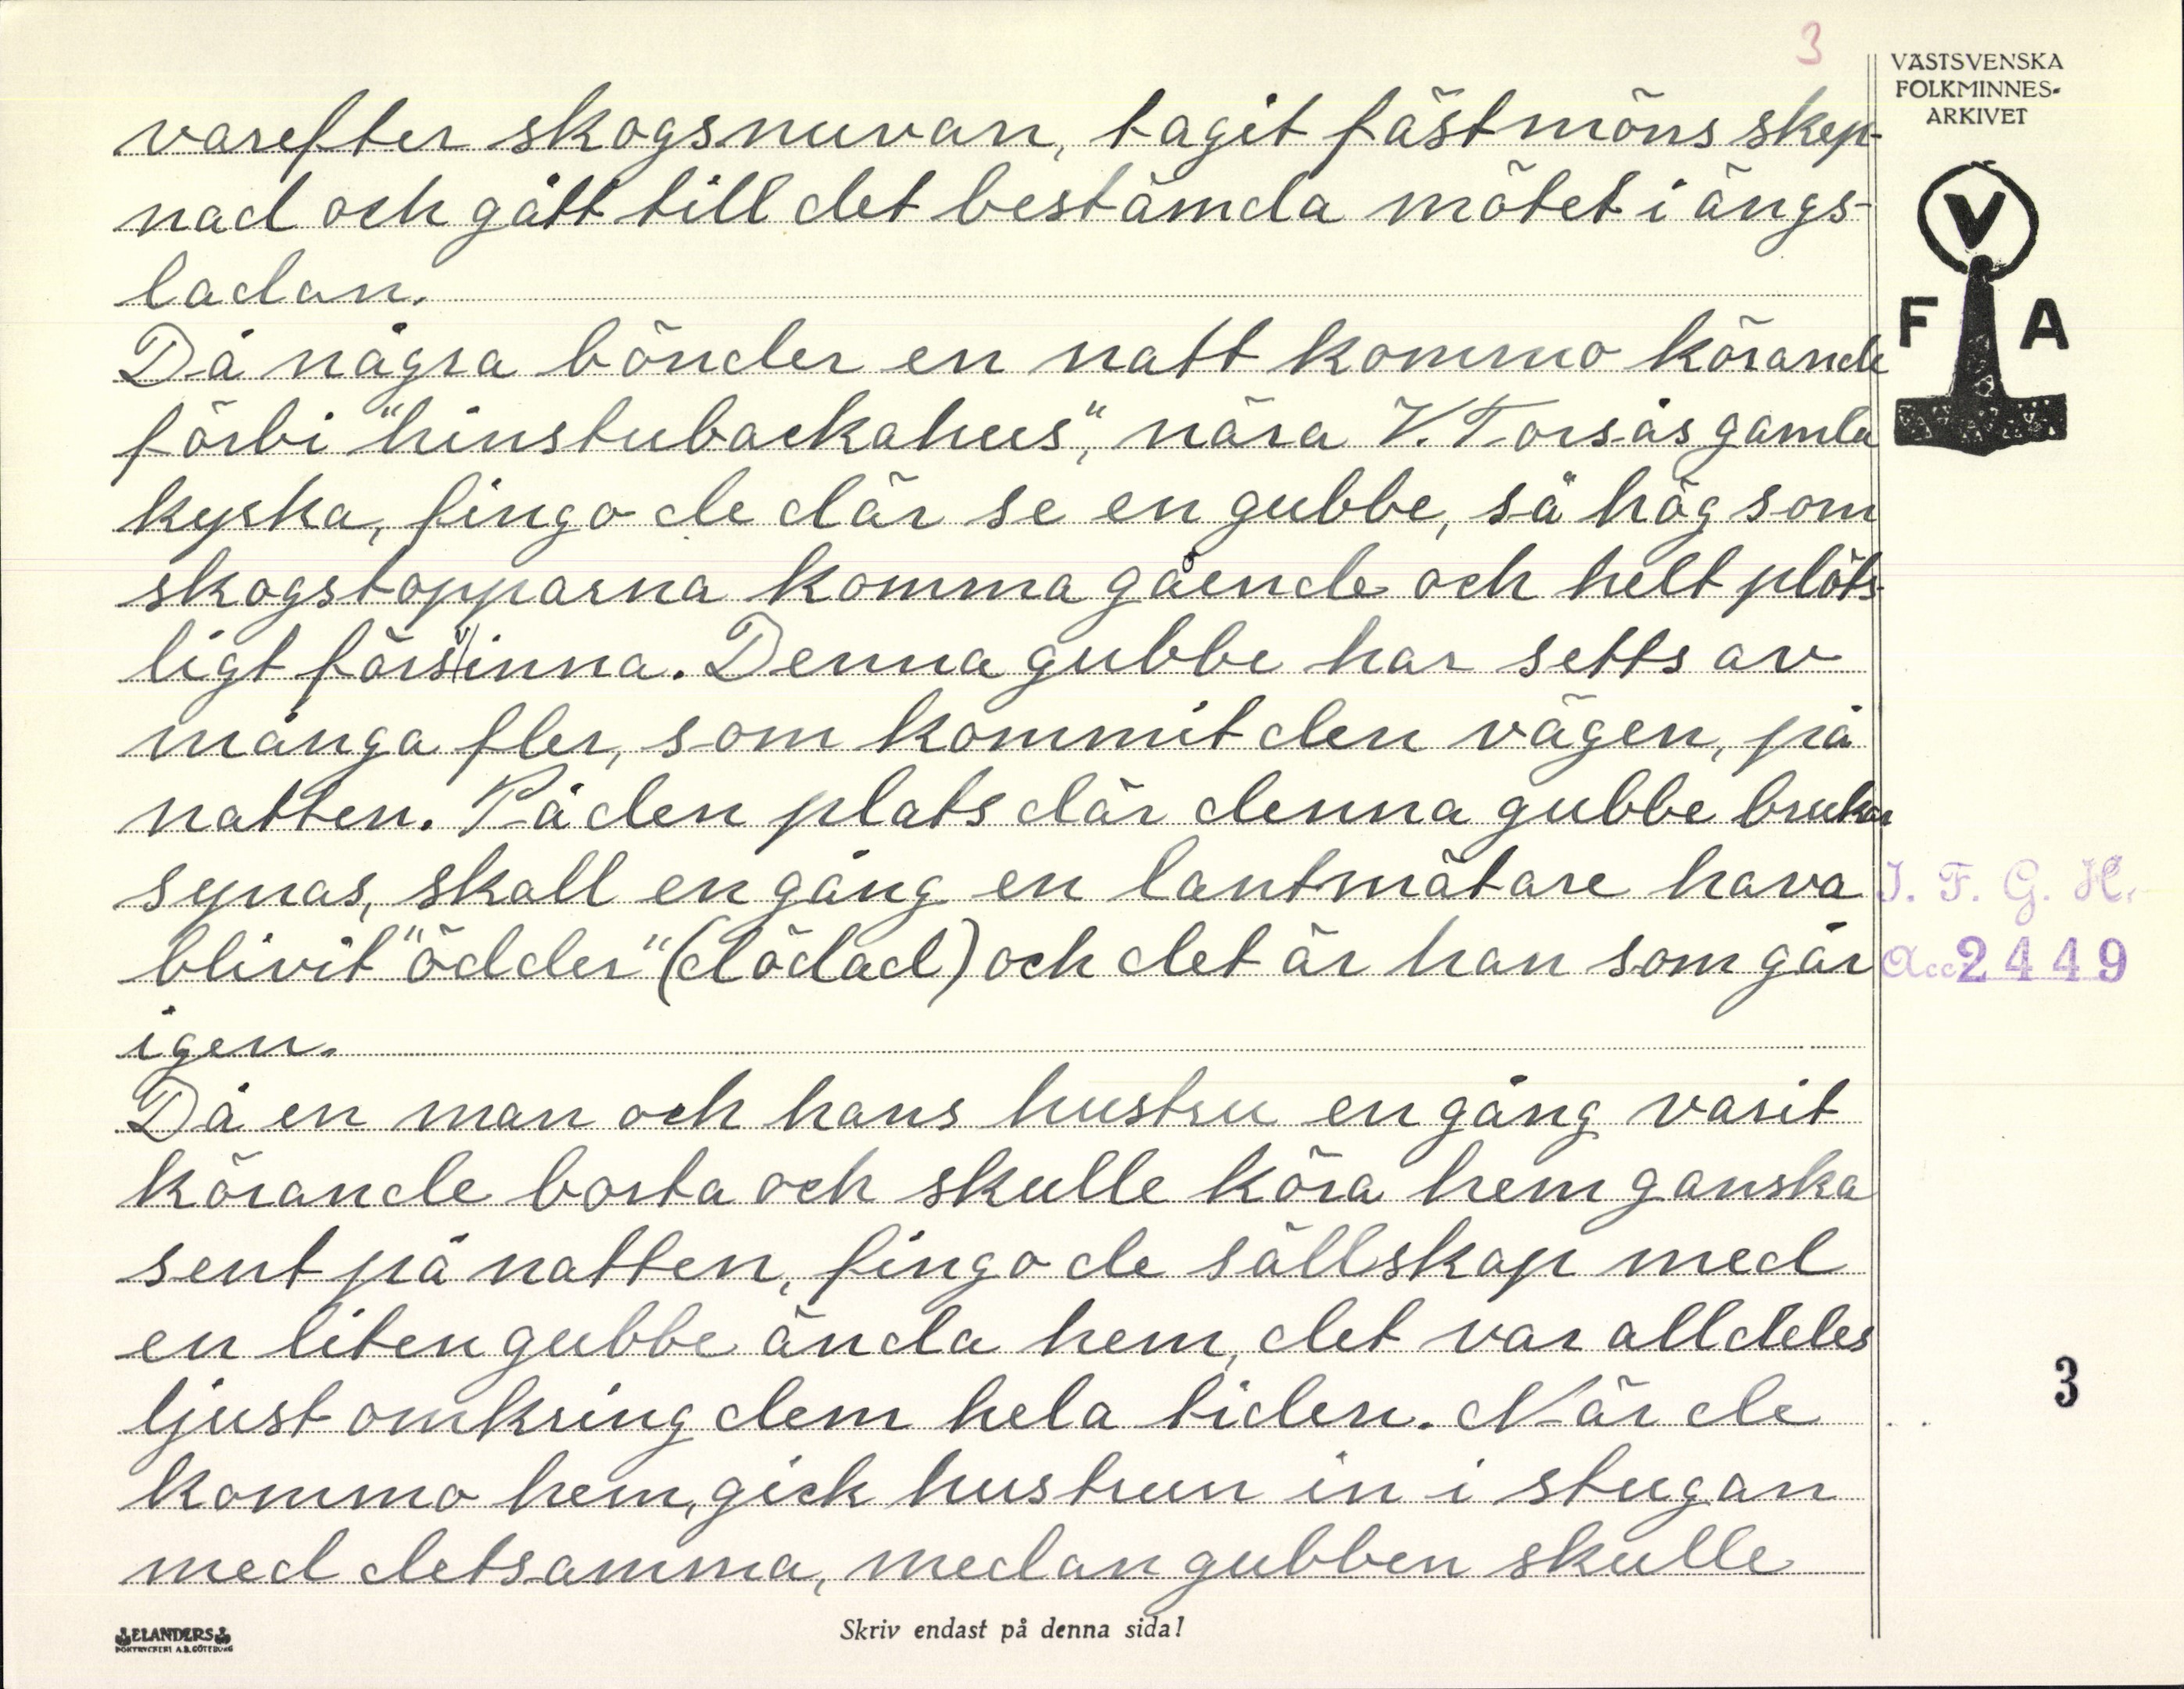 3
VÄSTSVENSKA
FOLKMINNES-
ARKIVET
varefter skogsnuvan, tagit fästmöns skep-
nad och gått till det bestämda mötet i ängs-
ladan.
Då några bönder en natt kommo körande
förbi "hinstubackahus", nära V. Torsås gamla
kyska, fingo de där se en gubbe, så hög som
skogstopparna komma gående och helt plöts-
ligt försvinna. Denna gubbe har setts av
många fler, som kommit den vägen, på
natten. På den plats där denna gubbe brukar
synas, skall en gång en lantmätare hava
blivit "ödder" (dödad) och det är han som går
igen.
Då en man och hans hustru en gång varit
körande borta och skulle köra hem ganska
sent på natten, fingo de sällskap med
en liten gubbe ända hem, det var alldeles
ljust omkring dem hela tiden. När de
kommo hem, gick hustrun in i stugan
med detsamma, medan gubben skulle
V
F A
I. F. G. H.
Acc 2449
3
ELANDERS
BOKTRYCKERI A.B. GÖTEBORG
Skriv endast på denna sida!